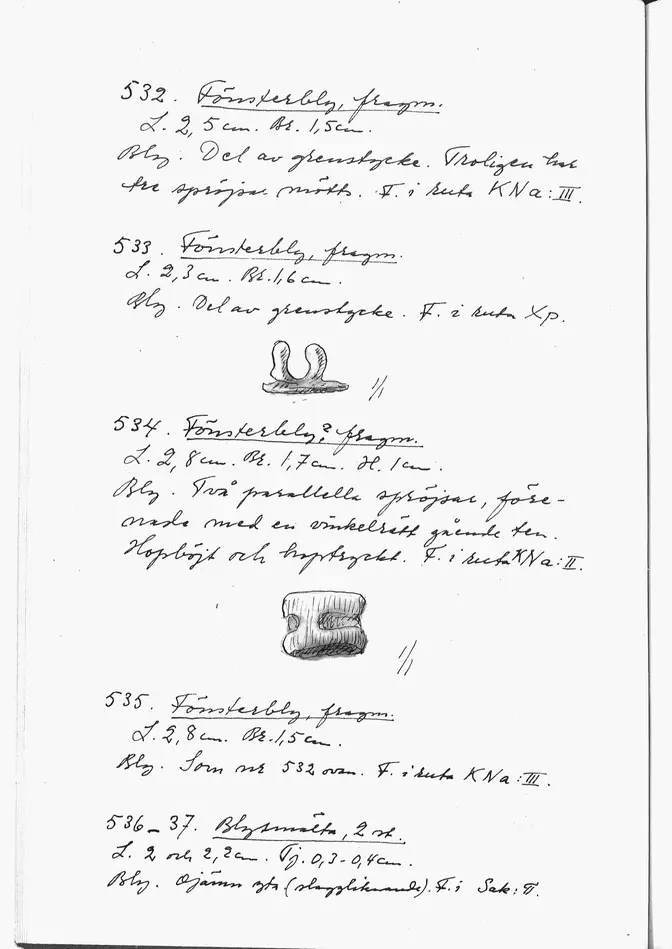 532. Fönsterbly, fragm.
L. 2,5 cm. Br. 1,5 cm.
Bly. Del av grenstycke. Troligen har
tre spröjsar mötts. F. i ruta KNa: III.
533. Fönsterbly, fragm.
L. 2,3 cm. Br. 1,6 cm.
Bly. Del av grenstycke. F. i ruta Xp.
1/1
534. Fönsterbly?, fragm.
L. 2,8 cm. Br. 1,7 cm. H. 1 cm.
Bly. Två parallella spröjsar, före-
nade med en vinkelrätt gående ten.
Hopböjt och hoptryckt. F. i ruta KNa: II.
1/1
535. Fönsterbly, fragm.
L. 2,8 cm. Br. 1,5 cm.
Bly. Som nr 532 ovan. F. i ruta KNa: III.
536-37. Blysmälta, 2 st.
L. 2 och 2,2 cm. Tj. 0,3-0,4 cm.
Bly. Ojämn yta (slaggliknande). F. i Sak: II.